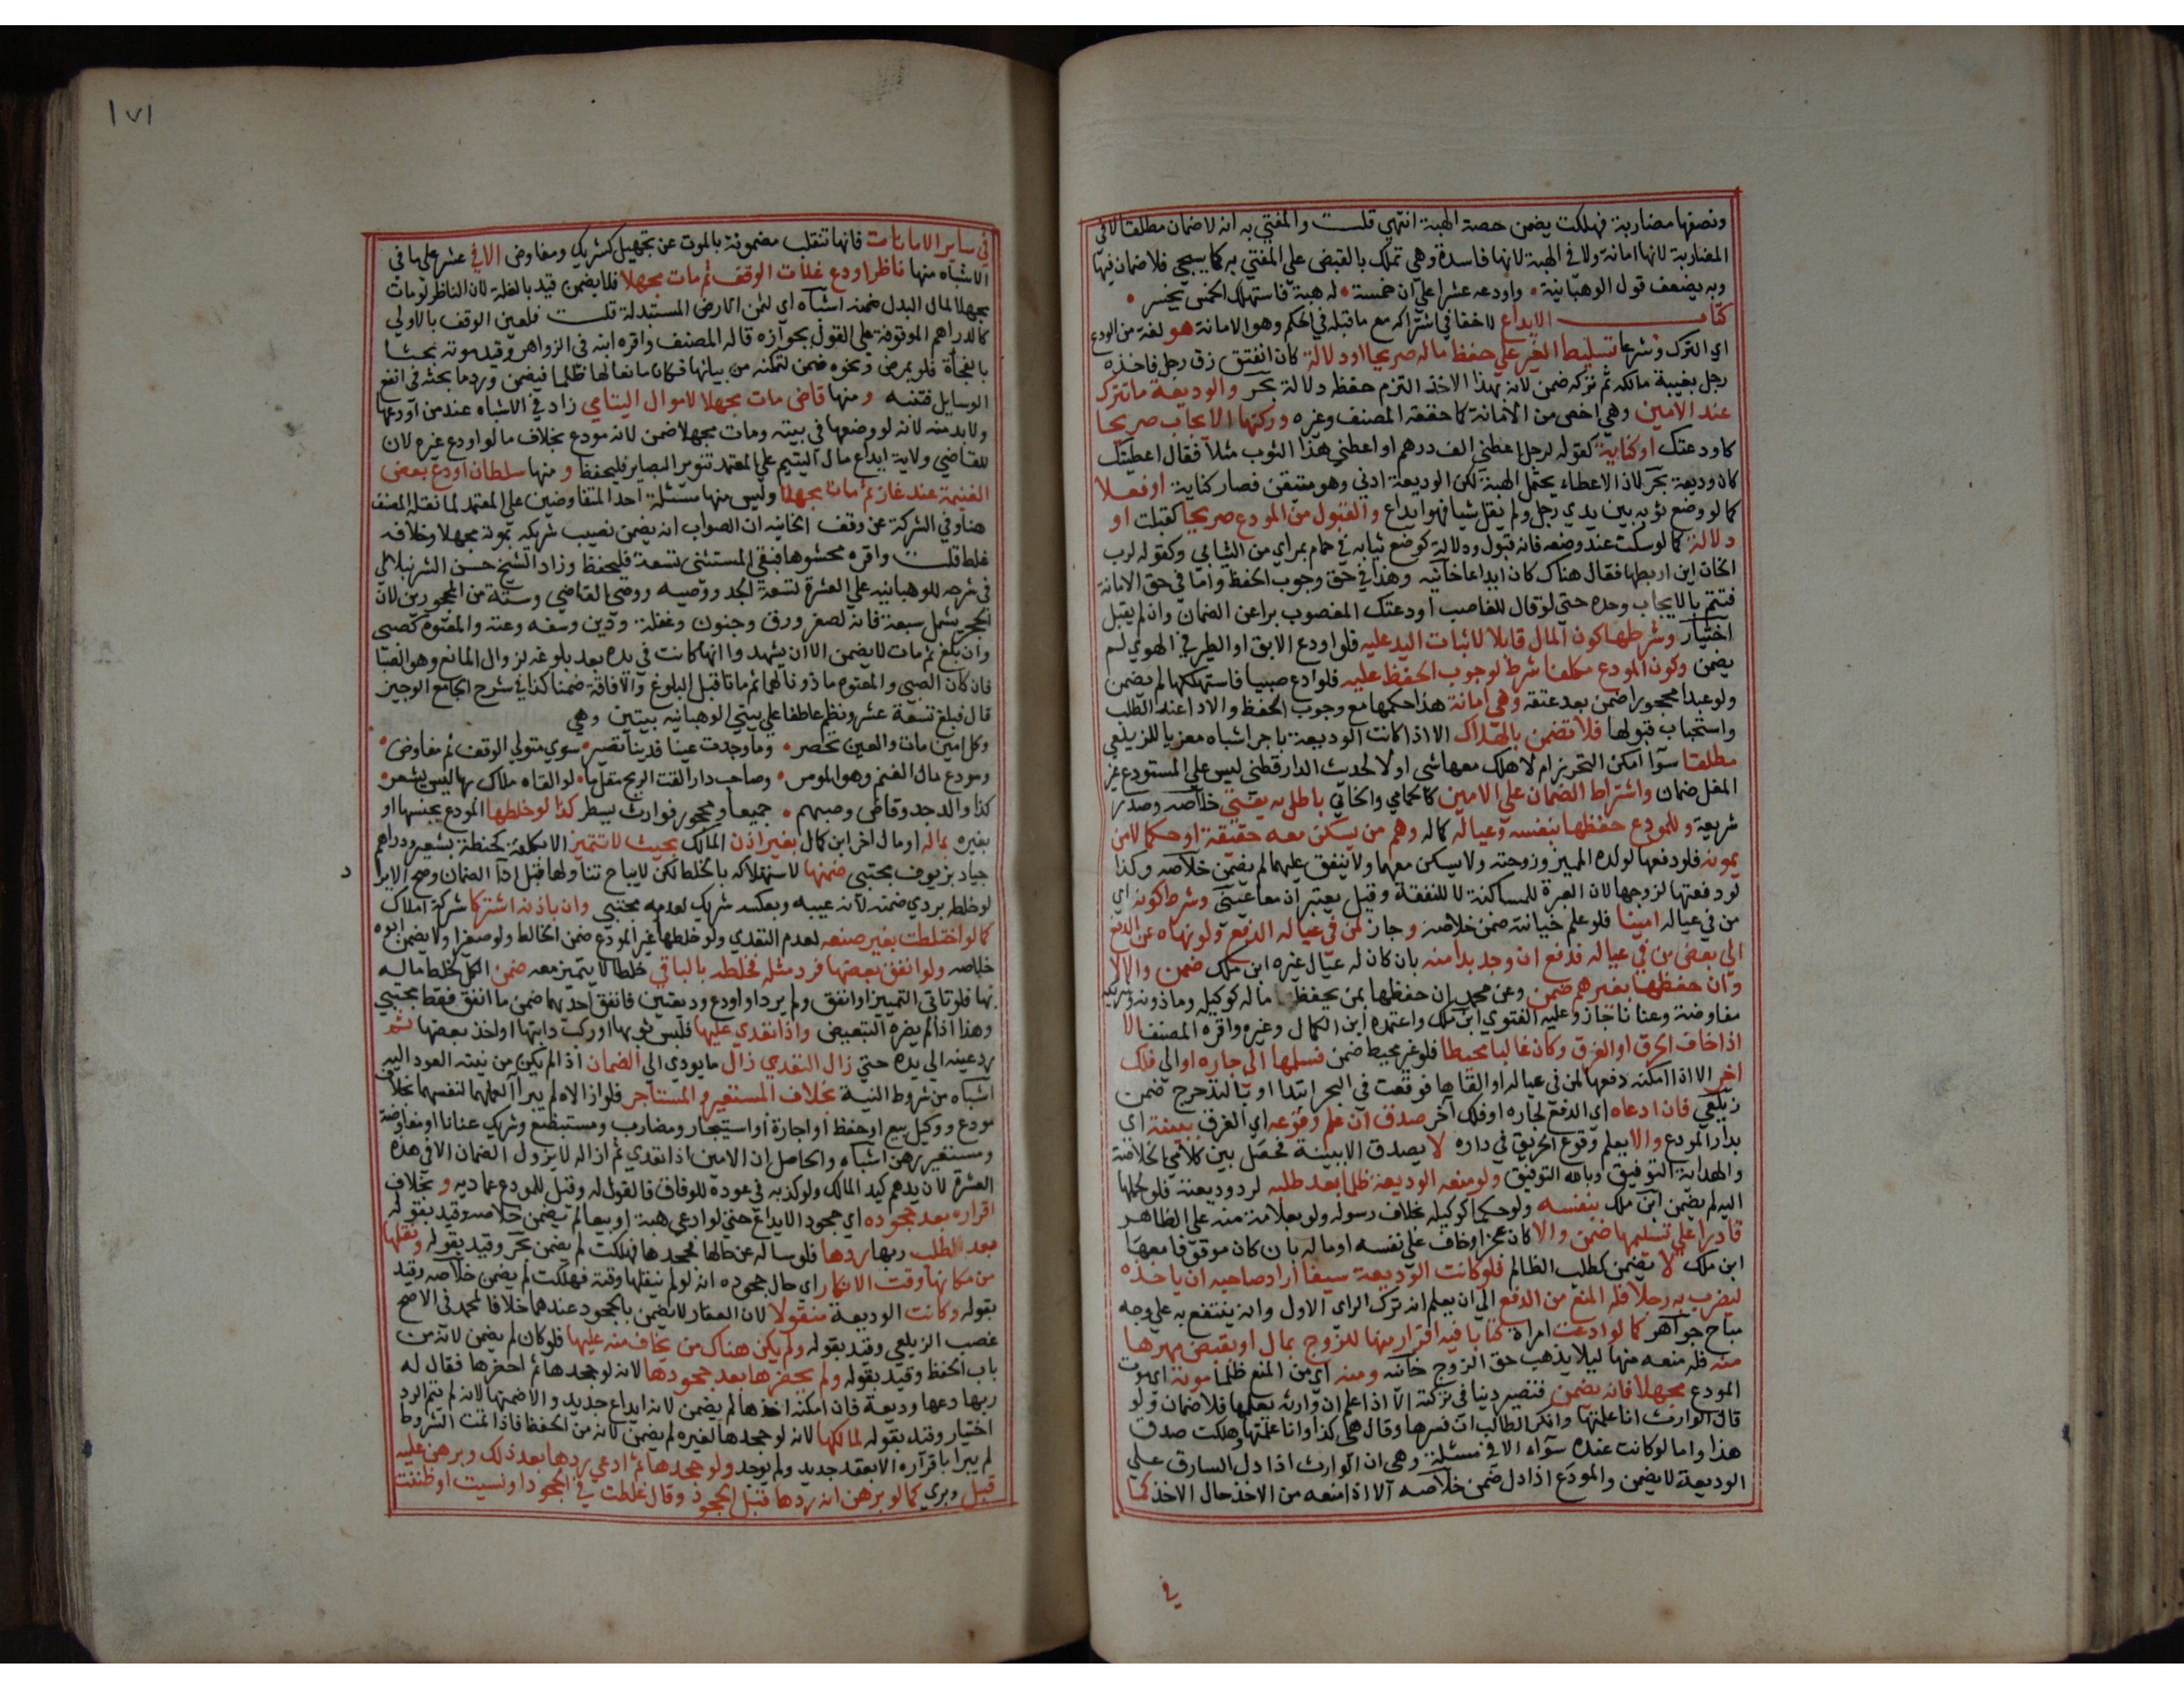 ونصفها مضاربة فهلكت يضمن حصة الهبة انتهي قلت والمفتي به انه لا ضمان مطلقا لا في
المضاربة لانها امانة ولا في الهبة لانها فاسدة وهي تملك بالقبض علي المفتي به كما سيجي فلا ضمان فيها
وبه يضعف قول الوهبانية • واودعه عشرا علي ان خمسة • له هبة فاستهلك الخمس يخسر •
كتاب الايداع لا خفا في اشتراكه مع ما قبله في الحكم وهو الامانة هو لغة من الودع
اي الترك وشرعا تسليط الغير علي حفظ ماله صريحا او دلالة كان انفتق زق رجل فاخذه
رجل بغيبة مالكه ثم تركه ضمن لانه بهذا الاخذ التزم حفظه دلالة بحر والوديعة ما تترك
عند الامين وهي اخص من الامانة كما حققه المصنف وغيره وركنها الايجاب صريحا
كاودعتك او كناية كقوله لرجل اعطني الف درهم او اعطني هذا الثوب مثلا فقال اعطيتك
كان وديعة بحر لان الاعطاء يحتمل الهبة لكن الوديعة ادني وهو متيقن فصار كناية او فعلا
كما لو وضع ثوبه بين يدي رجل ولم يقل شيا فهو ايداع والقبول من المودع صريحا كقبلت او
دلالة كما لو سكت عند وضعه فانه قبول ودلالة كوضع ثيابه في حمام بمراي من الثيابي وكقوله لرب
الخان اين اربطها فقال هناك كان ايداعا خانيه وهذا في حق وجوب الحفظ واما في حق الامانة
فتتم بالايجاب وحده حتي لو قال للغاصب اودعتك المغصوب برا عن الضمان وان لم يقبل
اختيار وشرطها كون المال قابلا لاثبات اليد عليه فلو اودع الابق او الطير في الهوي لم
يضمن وكون المودع مكلفا شرط لوجوب الحفظ عليه فلو ادع صبيا فاستهلكها لم يضمن
ولو عبدا محجورا ضمن بعد عتقه وهي امانة هذا حكمها مع وجوب الحفظ والادا عند الطلب
واستحباب قبولها فلا تضمن بالهلاك الا اذا كانت الوديعة باجر اشباه معزيا للزيلعي
مطلقا سوآ امكن التحرز ام لا هلك معها شي او لا لحديث الدارقطني ليس علي المستودع غير
المغل ضمان واشتراط الضمان علي الامين كالحمامي والخاني باطل به يفتي خلاصه وصدر
شريعة وللمودع حفظها بنفسه وعياله كماله وهم من يسكن معه حقيقة او حكما لا من
يمونه فلو دفعها لولده المميز وزوجته ولا يسكن معهما ولا ينفق عليهما لم يضمن خلاصه وكذا
لو دفعتها لزوجها لان العبرة للمساكنة لا للنفقة وقيل يعتبران معا عيني وشرط كونه اي
من في عياله امينا فلو علم خيانته ضمن خلاصه وجاز لمن في عياله الدفع ولو نهاه عن الدفع
الي بعض من في عياله فدفع ان وجد بدا منه بان كان له عيال غيره ابن ملك ضمن والا لا
وان حفظها بغيرهم ضمن وعن محمد ان حفظها بمن يحفظ ماله كوكيله وماذونه وشريكه
مفاوضة وعنانا جاز وعليه الفتوي ابن ملك واعتمده ابن الكمال وغيره واقره المصنف الا
اذا خاف الحرق او الغرق وكان غالبا محيطا فلو غير محيط ضمن فسلمها الي جاره او الي فلك
اخر الا اذا امكنه دفعها لمن في عياله او القاها فوقعت في البحر ابتدا او بالتدحرج ضمن
زيلعي فان ادعاه اي الدفع لجاره او فلك آخر صدق ان علم وقوعه اي الغرق ببينة اي
بدار المودع والا يعلم وقوع الحريق في داره لا يصدق الا ببينة فحصل بين كلامي الخلاصة
والهداية التوفيق وبالله التوفيق ولو منعه الوديعة ظلما بعد طلبه لرد وديعته فلو لحملها
اليه لم يضمن ابن ملك بنفسه ولو حكما كوكيله بخلاف رسوله ولو بعلامة منه علي الظاهر
قادرا علي تسليمها ضمن والا كان عجز او خاف علي نفسه او ماله بان كان مدفونا معها
ابن ملك لا يضمن كطلب الظالم فلو كانت الوديعة سيفا اراد صاحبه ان ياخذه
ليضرب به رجلا فله المنع من الدفع الي ان يعلم انه ترك الراي الاول وانه ينتفع به علي وجه
مباح جواهر كما لو ادعت امراة كتابا فيه اقرار منها للزوج بمال او بقبض مهرها
منه فله منعه منها ليلا يذهب حق الزوج خانيه ومنه اي من المنع ظلما موته اي موت
المودع مجهلا فانه يضمن فتصير دينا في تركته الا اذا علم ان وارثه يعلمها فلا ضمان ولو
قال الوارث انا علمتها وانكر الطالب ان فسرها وقال هي كذا وانا علمتها وهلكت صدق
هذا وما لو كانت عنده سوآء الا في مسئلة وهي ان الوارث اذا دل السارق علي
الوديعة لا يضمن والمودع اذا دل ضمن خلاصه الا اذا منعه من الاخذ حال الاخذ كما
في
١٧١
في ساير الامانات فانها تنقلب مضمونة بالموت عن تجهيل كشريك ومفاوض الا في عشر علي ما في
الاشباه منها ناظر اودع غلات الوقف ثم مات مجهلا فلا يضمن قيد بالغلة لان الناظر لو مات
مجهلا لمال البدل ضمنه اشباه اي لثمن الارض المستبدلة قلت فلعين الوقف بالاولي
كالدراهم الموقوفة علي القول بجوازه قاله المصنف واقره ابنه في الزواهر وقيد موته بحثا
بالفجأة فلو بمرض ونحوه ضمن لتمكنه من بيانها فكان مانعا لها ظلما فيضمن ورد ما بحثه في انفع
الوسايل فتنبه ومنها قاضي مات مجهلا لاموال اليتامي زاد في الاشباه عند من اودعها
ولا بد منه لانه لو وضعها في بيته ومات مجهلا ضمن لانه مودع بخلاف ما لو اودع غيره لان
للقاضي ولاية ايداع مال اليتيم علي المعتمد تنوير البصاير فليحفظ ومنها سلطان اودع بعض
الغنيمة عند غاز ثم مات مجهلا وليس منها مسئلة احد المتفاوضين علي المعتمد لما نقله المصنف
هنا وفي الشركة عن وقف الخانيه ان الصواب انه يضمن نصيب شريكه بموته مجهلا وخلافه
غلط قلت واقره محشوها فبقي المستثني تسعة فليحفظ وزاد الشيخ حسن الشرنبلالي
في شرحه للوهبانيه علي العشرة تسعة الجد ووصيه ووصي القاضي وستة من المحجورين لان
الحجر يشمل سبعة فانه لصغر ورق وجنون وغفلة ودين وسفه وعته والمعتوه كصبي
وان بلغ ثم مات لا يضمن الا ان يشهدوا انها كانت في يده بعد بلوغه لزوال المانع وهو الصبا
فان كان الصبي والمعتوه ماذونا لهما ثم ماتا قبل البلوغ والافاقة ضمنا كذا في شرح الجامع الوجيز
قال فبلغ تسعة عشر ونظم عاطفا علي بيتي الوهبانيه بيتين وهي
وكل امين مات والعين يحصر • وما وجدت عينا فدينا تصير • سوي متولي الوقف ثم مفاوض •
ومودع مال الغنم وهو المومر • وصاحب دار القت الريح مثل ما • لو القاه ملاك بها ليس يشعر •
كذا والد جد وقاض وصيهم • جميعا ومحجور فوارث يسطر كذا لو خلطها المودع بجنسها او
بغيره بماله او مال اخر ابن كمال بغير اذن المالك بحيث لا تتميز الا بكلفة كحنطة بشعير ودراهم
جياد بزيوف مجتبي ضمنها لاستهلاكه بالخلط لكن لا يباح تناولها قبل ادآ الضمان وصح الابرا
لو خلطه بردي ضمنه لانه عيبه وبعكسه شريك لعدمه مجتبي وان باذنه اشتركا شركة املاك
كما لو اختلطت بغير صنعه لعدم التعدي ولو خلطها غير المودع ضمن الخالط ولو صغيرا ولا يضمن ابوه
خلاصه ولو انفق بعضها فرد مثله فخلطه بالباقي خلطا لا يتميز معه ضمن الكل لخلط ماله
بها فلو تاتي التمييز او انفق ولم يرد او اودع وديعتين فانفق احديهما ضمن ما انفق فقط مجتبي
وهذا اذا لم يضره التبعيض واذا تعدي عليها فلبس ثوبها او ركب دابتها او اخذ بعضها ثم
رد عينه الي يده حتي زال التعدي زال ما يودي الي الضمان اذا لم يكن من نيته العود اليه
اشباه من شروط النية بخلاف المستعير والمستاجر فلو ازالاه لم يبرآ لعملهما لنفسهما بخلاف
مودع ووكيل بيع او حفظ او اجارة او استيجار ومضارب ومستبضع وشريك عنانا او مفاوضة
ومستعير رهن اشباه والحاصل ان الامين اذا تعدي ثم ازاله لا يزول الضمان الا في هذه
العشرة لان يدهم كيد المالك ولو كذبه في عوده للوفاق فالقول له وقيل للمودع عماديه وبخلاف
اقراره بعد جحوده اي جحود الايداع حتي لو ادعي هبة او بيعا لم يضمن خلاصه وقيد بقوله
بعد طلب ربها ردها فلو ساله عن حالها فجحدها فهلكت لم يضمن بحر وقيد بقوله ونقلها
من مكانها وقت الانكار اي حال جحوده انه لو لم ينقلها وقته فهلكت لم يضمن خلاصه وقيد
بقوله وكانت الوديعة منقولا لان العقار لا يضمن بالجحود عندهما خلافا لمحمد في الاصح
غصب الزيلعي وقيد بقوله ولم يكن هناك من يخاف منه عليها فلو كان لم يضمن لانه من
باب الحفظ وقيد بقوله ولم يحضرها بعد جحودها لانه لو جحدها ثم احضرها فقال له
ربها دعها وديعة فان امكنه اخذها لم يضمن لانه ايداع جديد والا ضمنها لانه لم يتم الرد
اختيار وقيد بقوله لمالكها لانه لو جحدها لغيره لم يضمن لانه من الحفظ فاذا تمت الشروط
لم يبرا باقراره الا بعقد جديد ولم يوجد ولو جحدها ثم ادعي ردها بعد ذلك وبرهن عليه
قبل وبري كما لو برهن انه ردها قبل الجحود وقال غلطت في الجحود او نسيت او ظننت